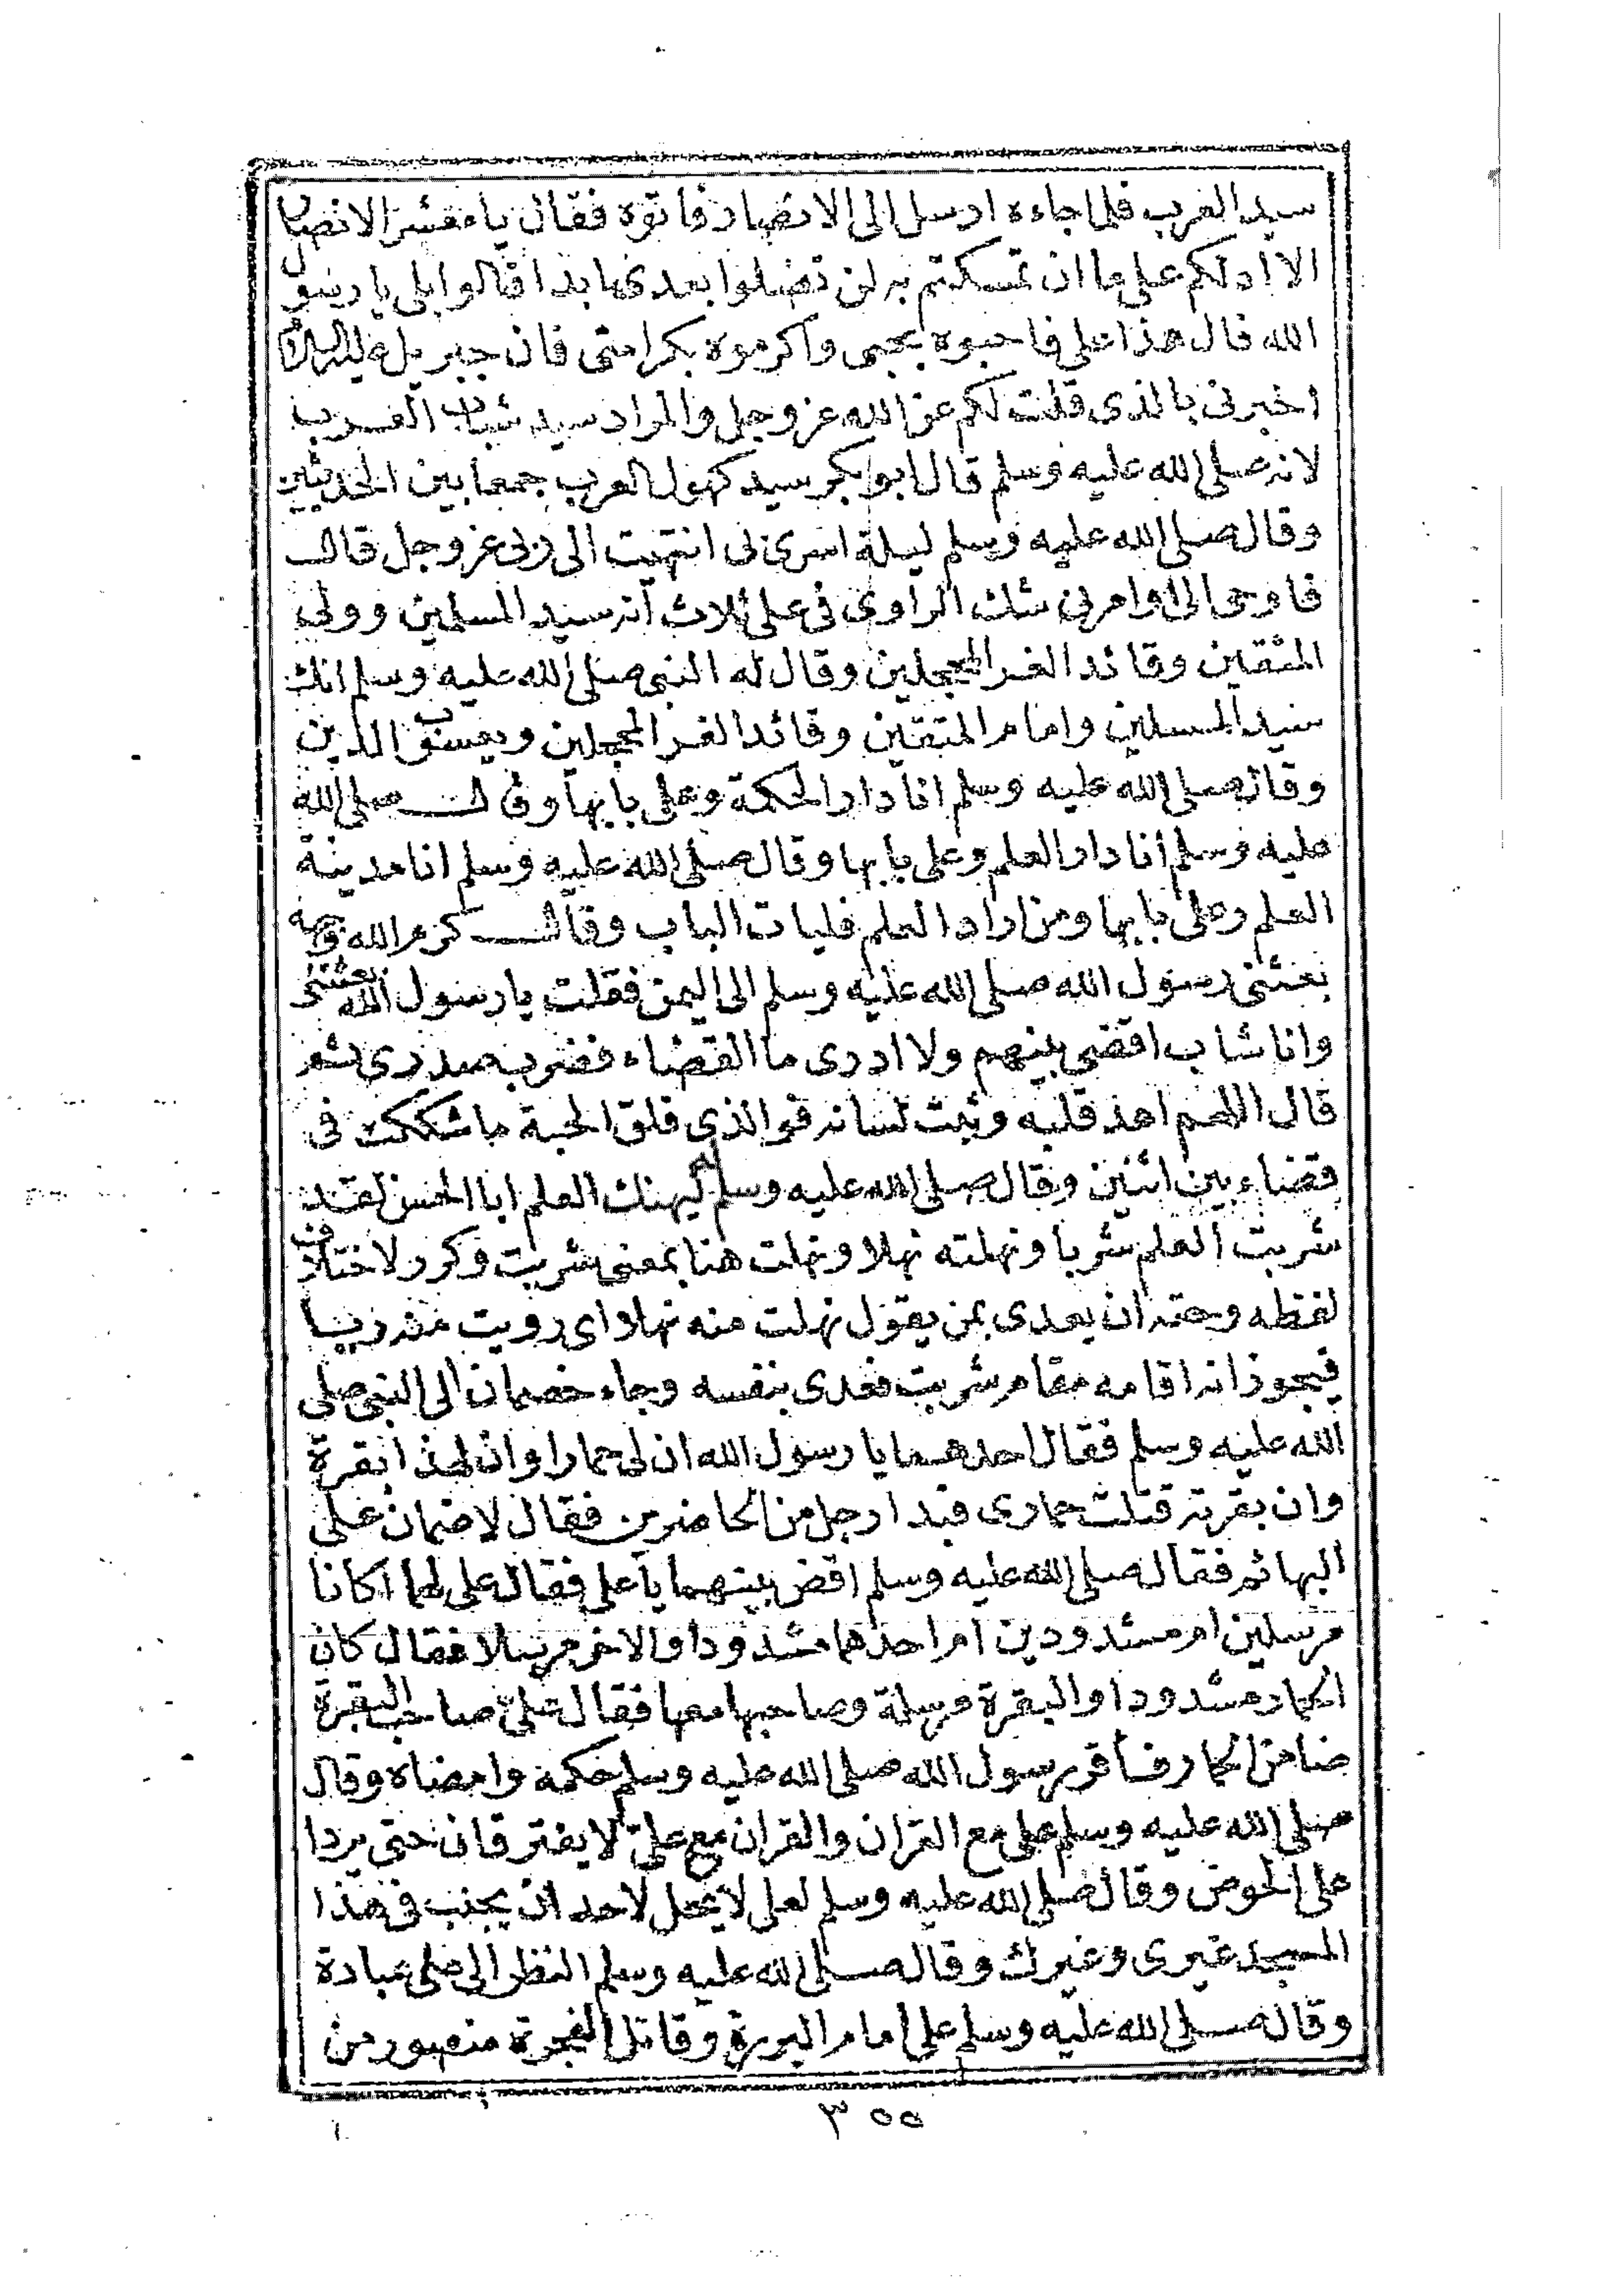 سيد العرب فلما جاءه ارسل الى الانصار فاتوه فقال يا معشر الانصار
الا ادلكم على ما ان تمسكتم به لن تضلوا بعدى ابدا قالوا بلى يا رسول
الله قال هذا على فاحبوه بحبى واكرموه بكرامتى فان جبريل عليه السلام
اخبرنى بالذى قلت لكم عن الله عز وجل والمراد سيد شباب العرب
لانه صلى الله عليه وسلم قال ابو بكر سيد كهول العرب جمعا بين الحديثين
وقال صلى الله عليه وسلم ليلة اسرى بى انتهيت الى ربى عز وجل قال
فاوحى الى او امرنى شك الراوى فى على ثلاث انه سيد المسلمين وولى
المتقين وقائد الغر المحجلين وقال له النبى صلى الله عليه وسلم انك
سيد المسلمين وامام المتقين وقائد الغر المحجلين ويعسوب الدين
وقال صلى الله عليه وسلم انا دار الحكمة وعلى بابها وقال صلى الله
عليه وسلم أنا دار العلم وعلى بابها وقال صلى الله عليه وسلم انا مدينة
العلم وعلى بابها ومن اراد العلم فليات الباب وقال كرم الله وجهه
بعثنى رسول الله صلى الله عليه وسلم الى اليمن فقلت يا رسول الله بعثتنى
وانا شاب اقضى بينهم ولا ادرى ما القضاء فضرب صدرى ثم
قال اللهم اهد قلبه وثبت لسانه فوالذى فلق الحبة ما شككت فى
قضاء بين اثنين وقال صلى الله عليه وسلم ليهنك العلم ابا الحسن لقد
شربت العلم شربا ونهلته نهلا ونهلت هنا بمعنى شربت وكرر لاختلاف
لفظه وحقه ان يعدى بمن يقول نهلت منه نهلا اى رويت منه ريا
فيجوز انه اقامه مقام شربت فعدى بنفسه وجاء خصمان الى النبى صلى
الله عليه وسلم فقال احدهما يا رسول الله ان لى حمارا وان لهذا بقرة
وان بقرته قتلت حمارى فبدا رجل من الحاضرين فقال لا ضمان على
البهائم فقال صلى الله عليه وسلم اقض بينهما يا على فقال على لهما اكانا
مرسلين ام مشدودين ام احدهما مشدودا والاخر مرسلا فقال كان
الحمار مشدودا والبقرة مرسلة وصاحبها معها فقال على صاحب البقرة
ضامن الحمار فأقر رسول الله صلى الله عليه وسلم حكمه وامضاه وقال
صلى الله عليه وسلم على مع القرآن والقرآن مع على لا يفترقان حتى يردا
على الحوض وقال صلى الله عليه وسلم لعلى لا يحل لاحد ان يجنب فى هذا
المسجد غيرى وغيرك وقال صلى الله عليه وسلم النظر الى على عبادة
وقال صلى الله عليه وسلم على امام البررة وقاتل الفجرة منصور من
٣٥٥